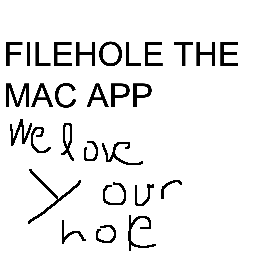 FILEHOLE THE
MAC APP
We love
Your
hole